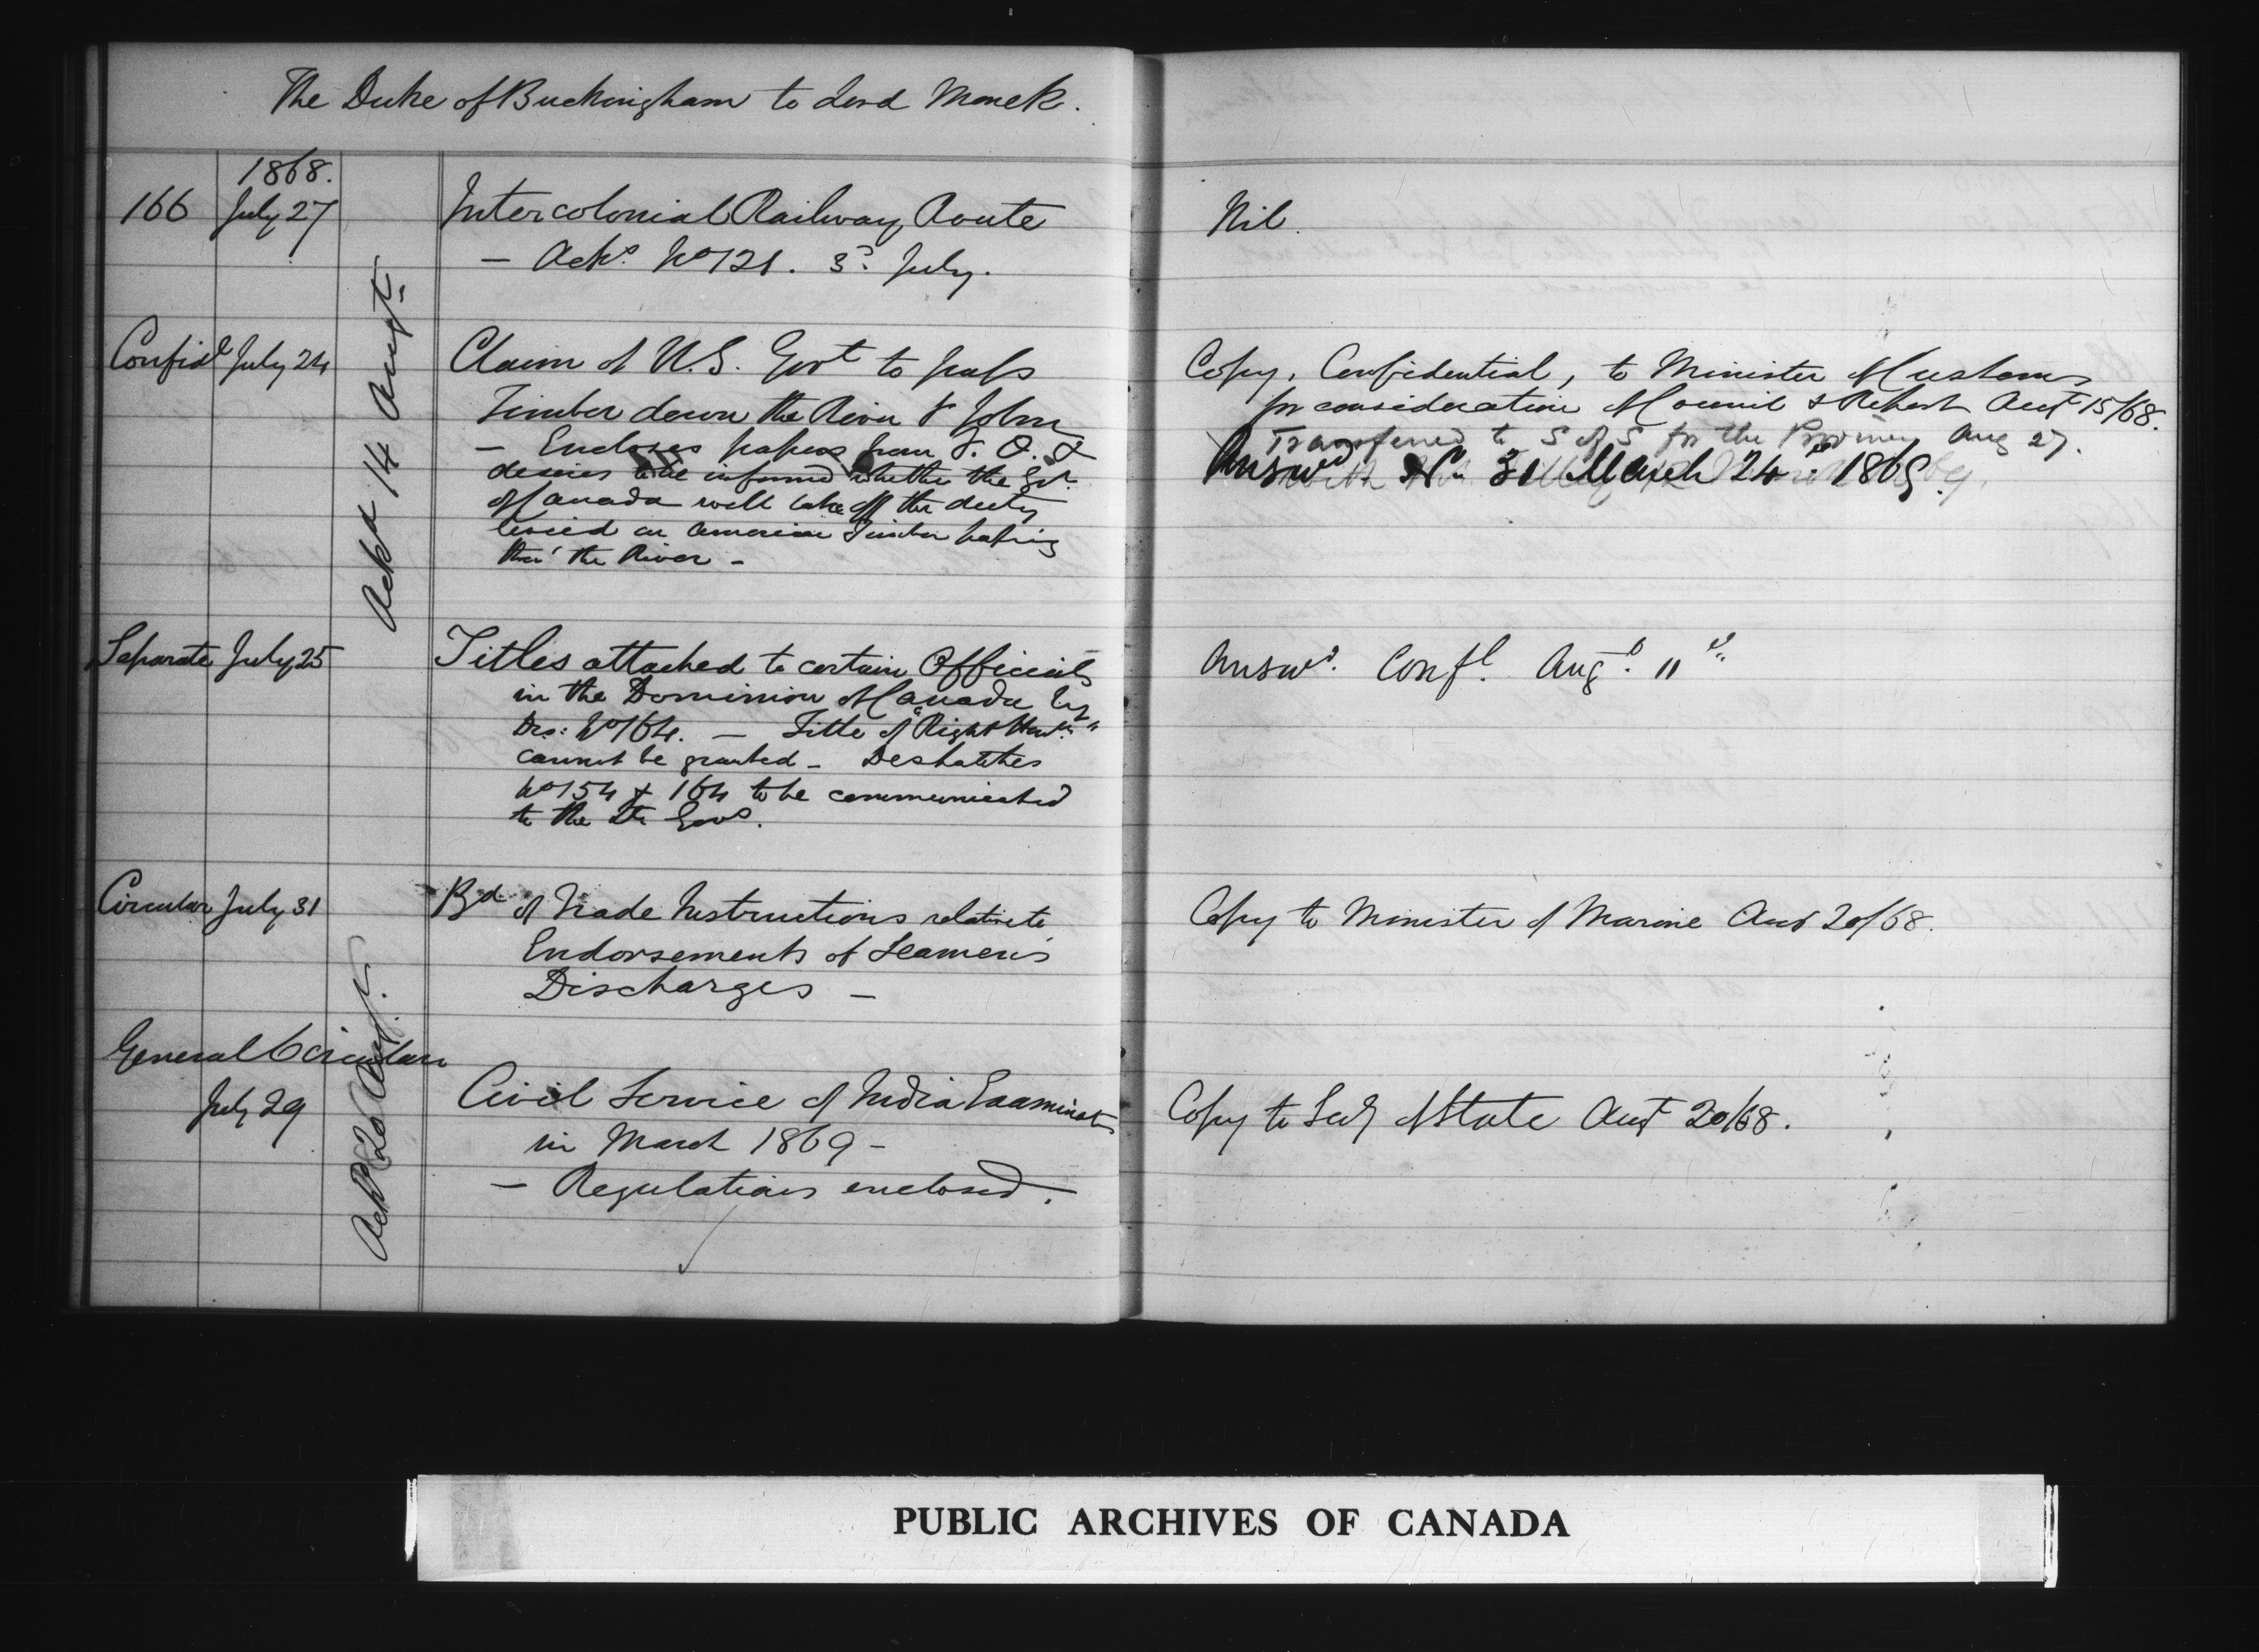 The Duke of Buckingham to Lord Monck.
1868.
166 July 27
Intercolonial Railway Route
— Acks. No 121. 3d. July.
Nil.
Ackd 14 Augt.
Confidl July 24
Claim of U.S. Govt to pass
Timber down the River St John
— Encloses papers from F. O. &
desires to be informed whether the Govt.
of Canada will take off the duty
levied on American Timber passing
thro' the River —
Copy, Confidential, to Minister of Customs
for consideration of Council & Report Augt 15/68.
Transferred to S of S for the Provinces Aug 27.
Answd No 31 March 24th 1869.
Separate July 25
Titles attached to certain Officials
in the Dominion of Canada by
Des: No 164. — Title of "Right Honble"
cannot be granted — Despatches
No 154 & 164 to be communicated
to the Lt Govs.
Answd. Confl. Augt. 11th
Circular July 31
Bd of Trade Instructions relative to
Endorsements of Seamen's
Discharges —
Copy to Minister of Marine Augt 20/68.
Ackd 20 Augt.
General Circular
July 29
Civil Service of India Examinatn
in March 1869 —
— Regulations enclosed.
Copy to Secy of State Augt 20/68.
PUBLIC ARCHIVES OF CANADA